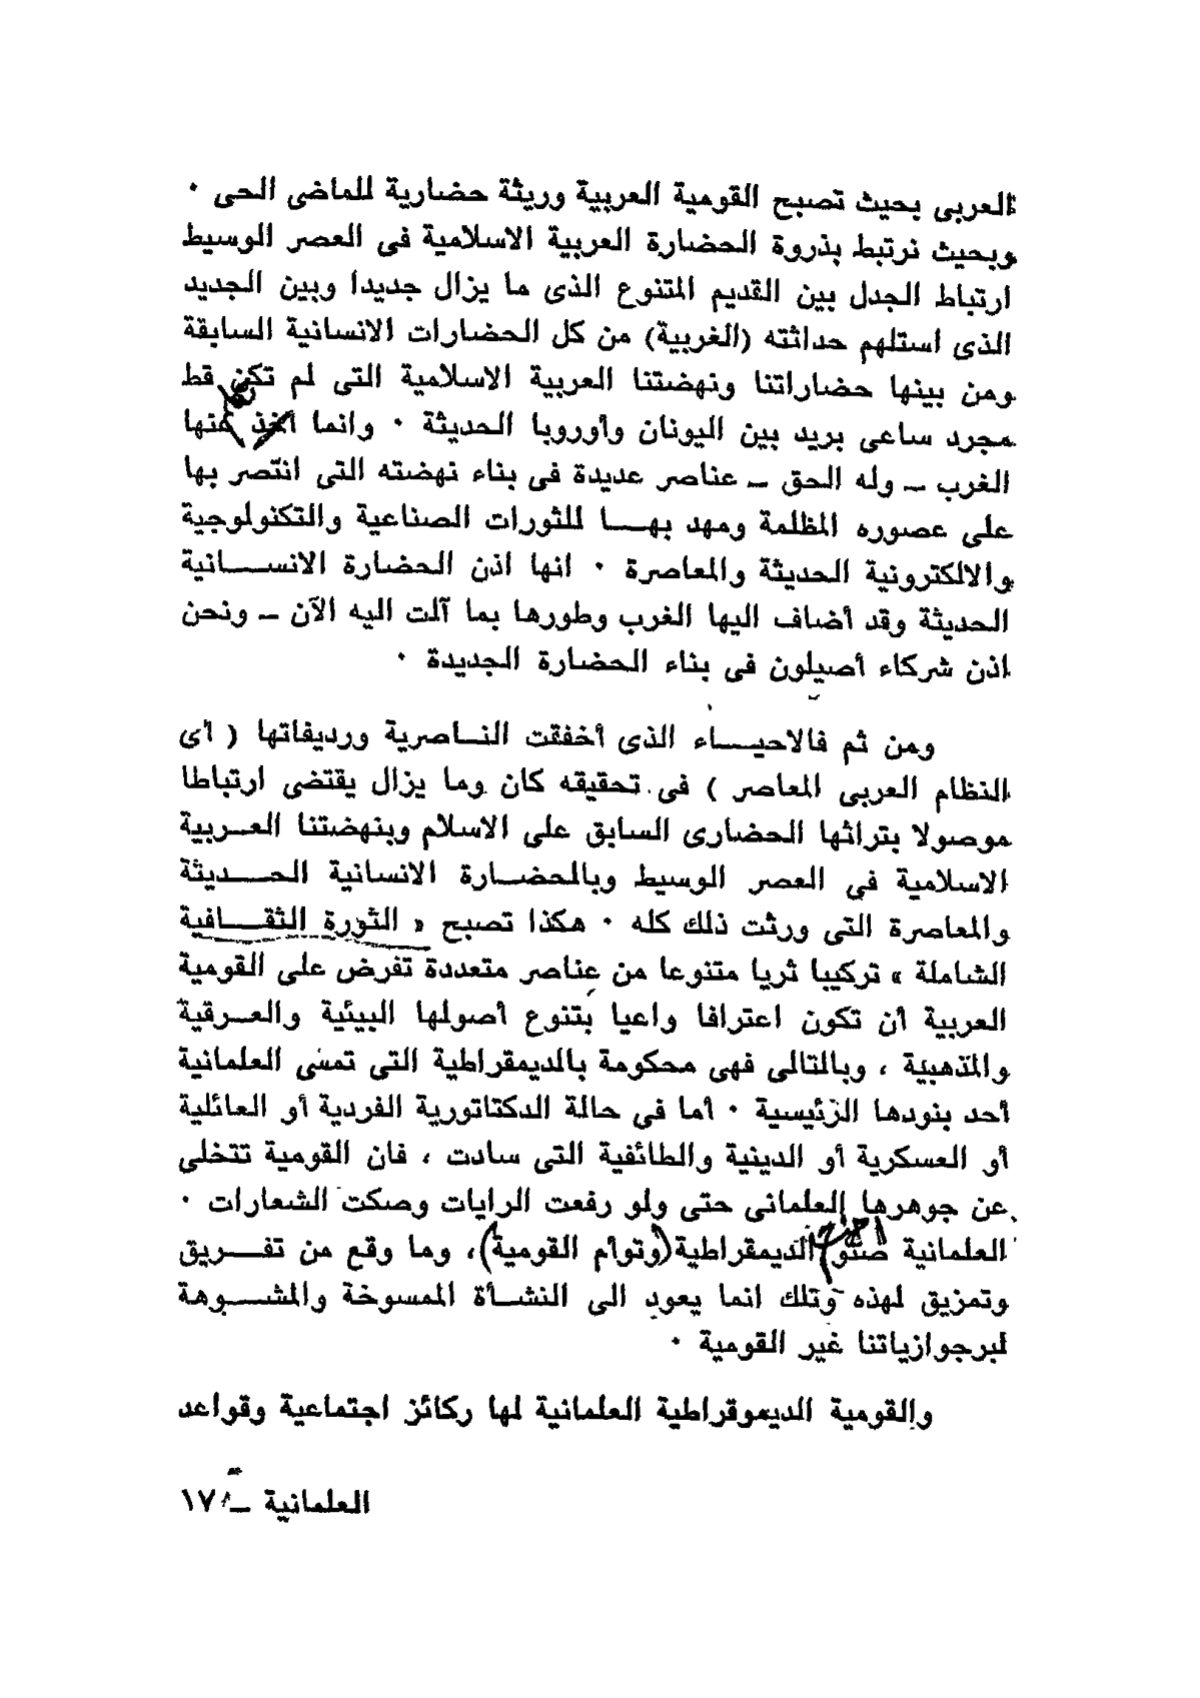 العربى بحيث تصبح القومية العربية وريثة حضارية للماضى الحى ٠
وبحيث نرتبط بذروة الحضارة العربية الاسلامية فى العصر الوسيط
ارتباط الجدل بين القديم المتنوع الذى ما يزال جديدا وبين الجديد
الذى استلهم حداثته (الغربية) من كل الحضارات الانسانية السابقة
ومن بينها حضاراتنا ونهضتنا العربية الاسلامية التى لم تكن قط
مجرد ساعى بريد بين اليونان وأوروبا الحديثة ٠ وانما أخذ عنها
الغرب ــ وله الحق ــ عناصر عديدة فى بناء نهضته التى انتصر بها
على عصوره المظلمة ومهد بهـــا للثورات الصناعية والتكنولوجية
والالكترونية الحديثة والمعاصرة ٠ انها اذن الحضارة الانســـانية
الحديثة وقد أضاف اليها الغرب وطورها بما آلت اليه الآن ــ ونحن
اذن شركاء أصيلون فى بناء الحضارة الجديدة ٠
ومن ثم فالاحيـــاء الذى أخفقت النــاصرية ورديفاتها ( أى
النظام العربى المعاصر ) فى تحقيقه كان وما يزال يقتضى ارتباطا
موصولا بتراثها الحضارى السابق على الاسلام وبنهضتنا العــربية
الاسلامية في العصر الوسيط وبالحضــارة الانسانية الحـــديثة
والمعاصرة التى ورثت ذلك كله ٠ هكذا تصبح « الثورة الثقـــافية
الشاملة » تركيبا ثريا متنوعا من عناصر متعددة تفرض على القومية
العربية أن تكون اعترافا واعيا بتنوع أصولها البيئية والعــرقية
والمذهبية ، وبالتالى فهى محكومة بالديمقراطية التى تمسى العلمانية
أحد بنودها الرئيسية ٠ أما فى حالة الدكتاتورية الفردية أو العائلية
أو العسكرية أو الدينية والطائفية التى سادت ، فان القومية تتخلى
عن جوهرها العلمانى حتى ولو رفعت الرايات وصكت الشعارات ٠
العلمانية صنو الديمقراطية (وتوأم القومية) ، وما وقع من تفـــريق
وتمزيق لهذه وتلك انما يعود الى النشــأة الممسوخة والمشـــوهة
لبرجوازياتنا غير القومية ٠
والقومية الديموقراطية العلمانية لها ركائز اجتماعية وقواعد
العلمانية ــ ١٧